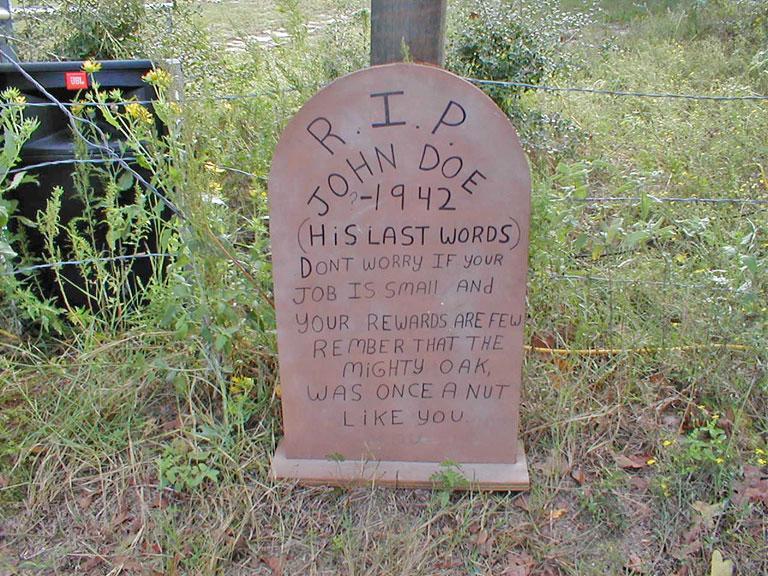 JBL
R.I.P.
JOHN DOE
?-1942
(HiS LAST WORDS)
DONT WORRY IF YOUR
JOB IS SMAll AND
YOUR REWARDS ARE FEW
REMBER THAT THE
MiGHTY OAK,
WAS ONCE A NUT
LiKE YOU.